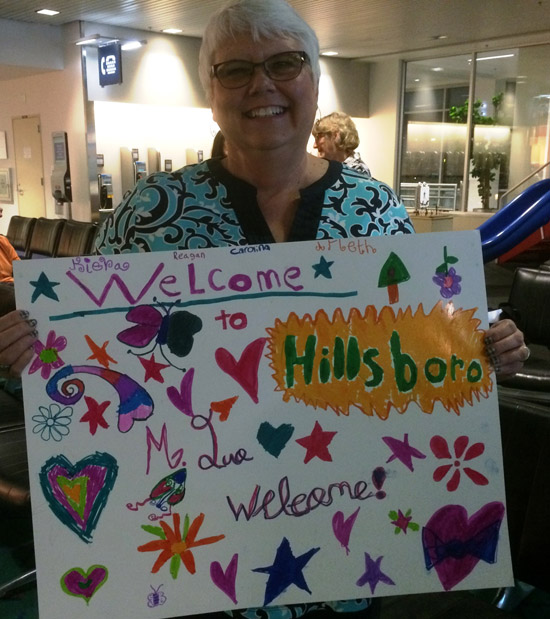 Kiera Reagan Carolina Lilbeth
Welcome
to
Hillsboro
M. Luo
Welcome!